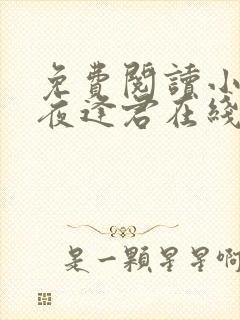 免費閱讀小
夜逢君在綫
是一顆星星啊